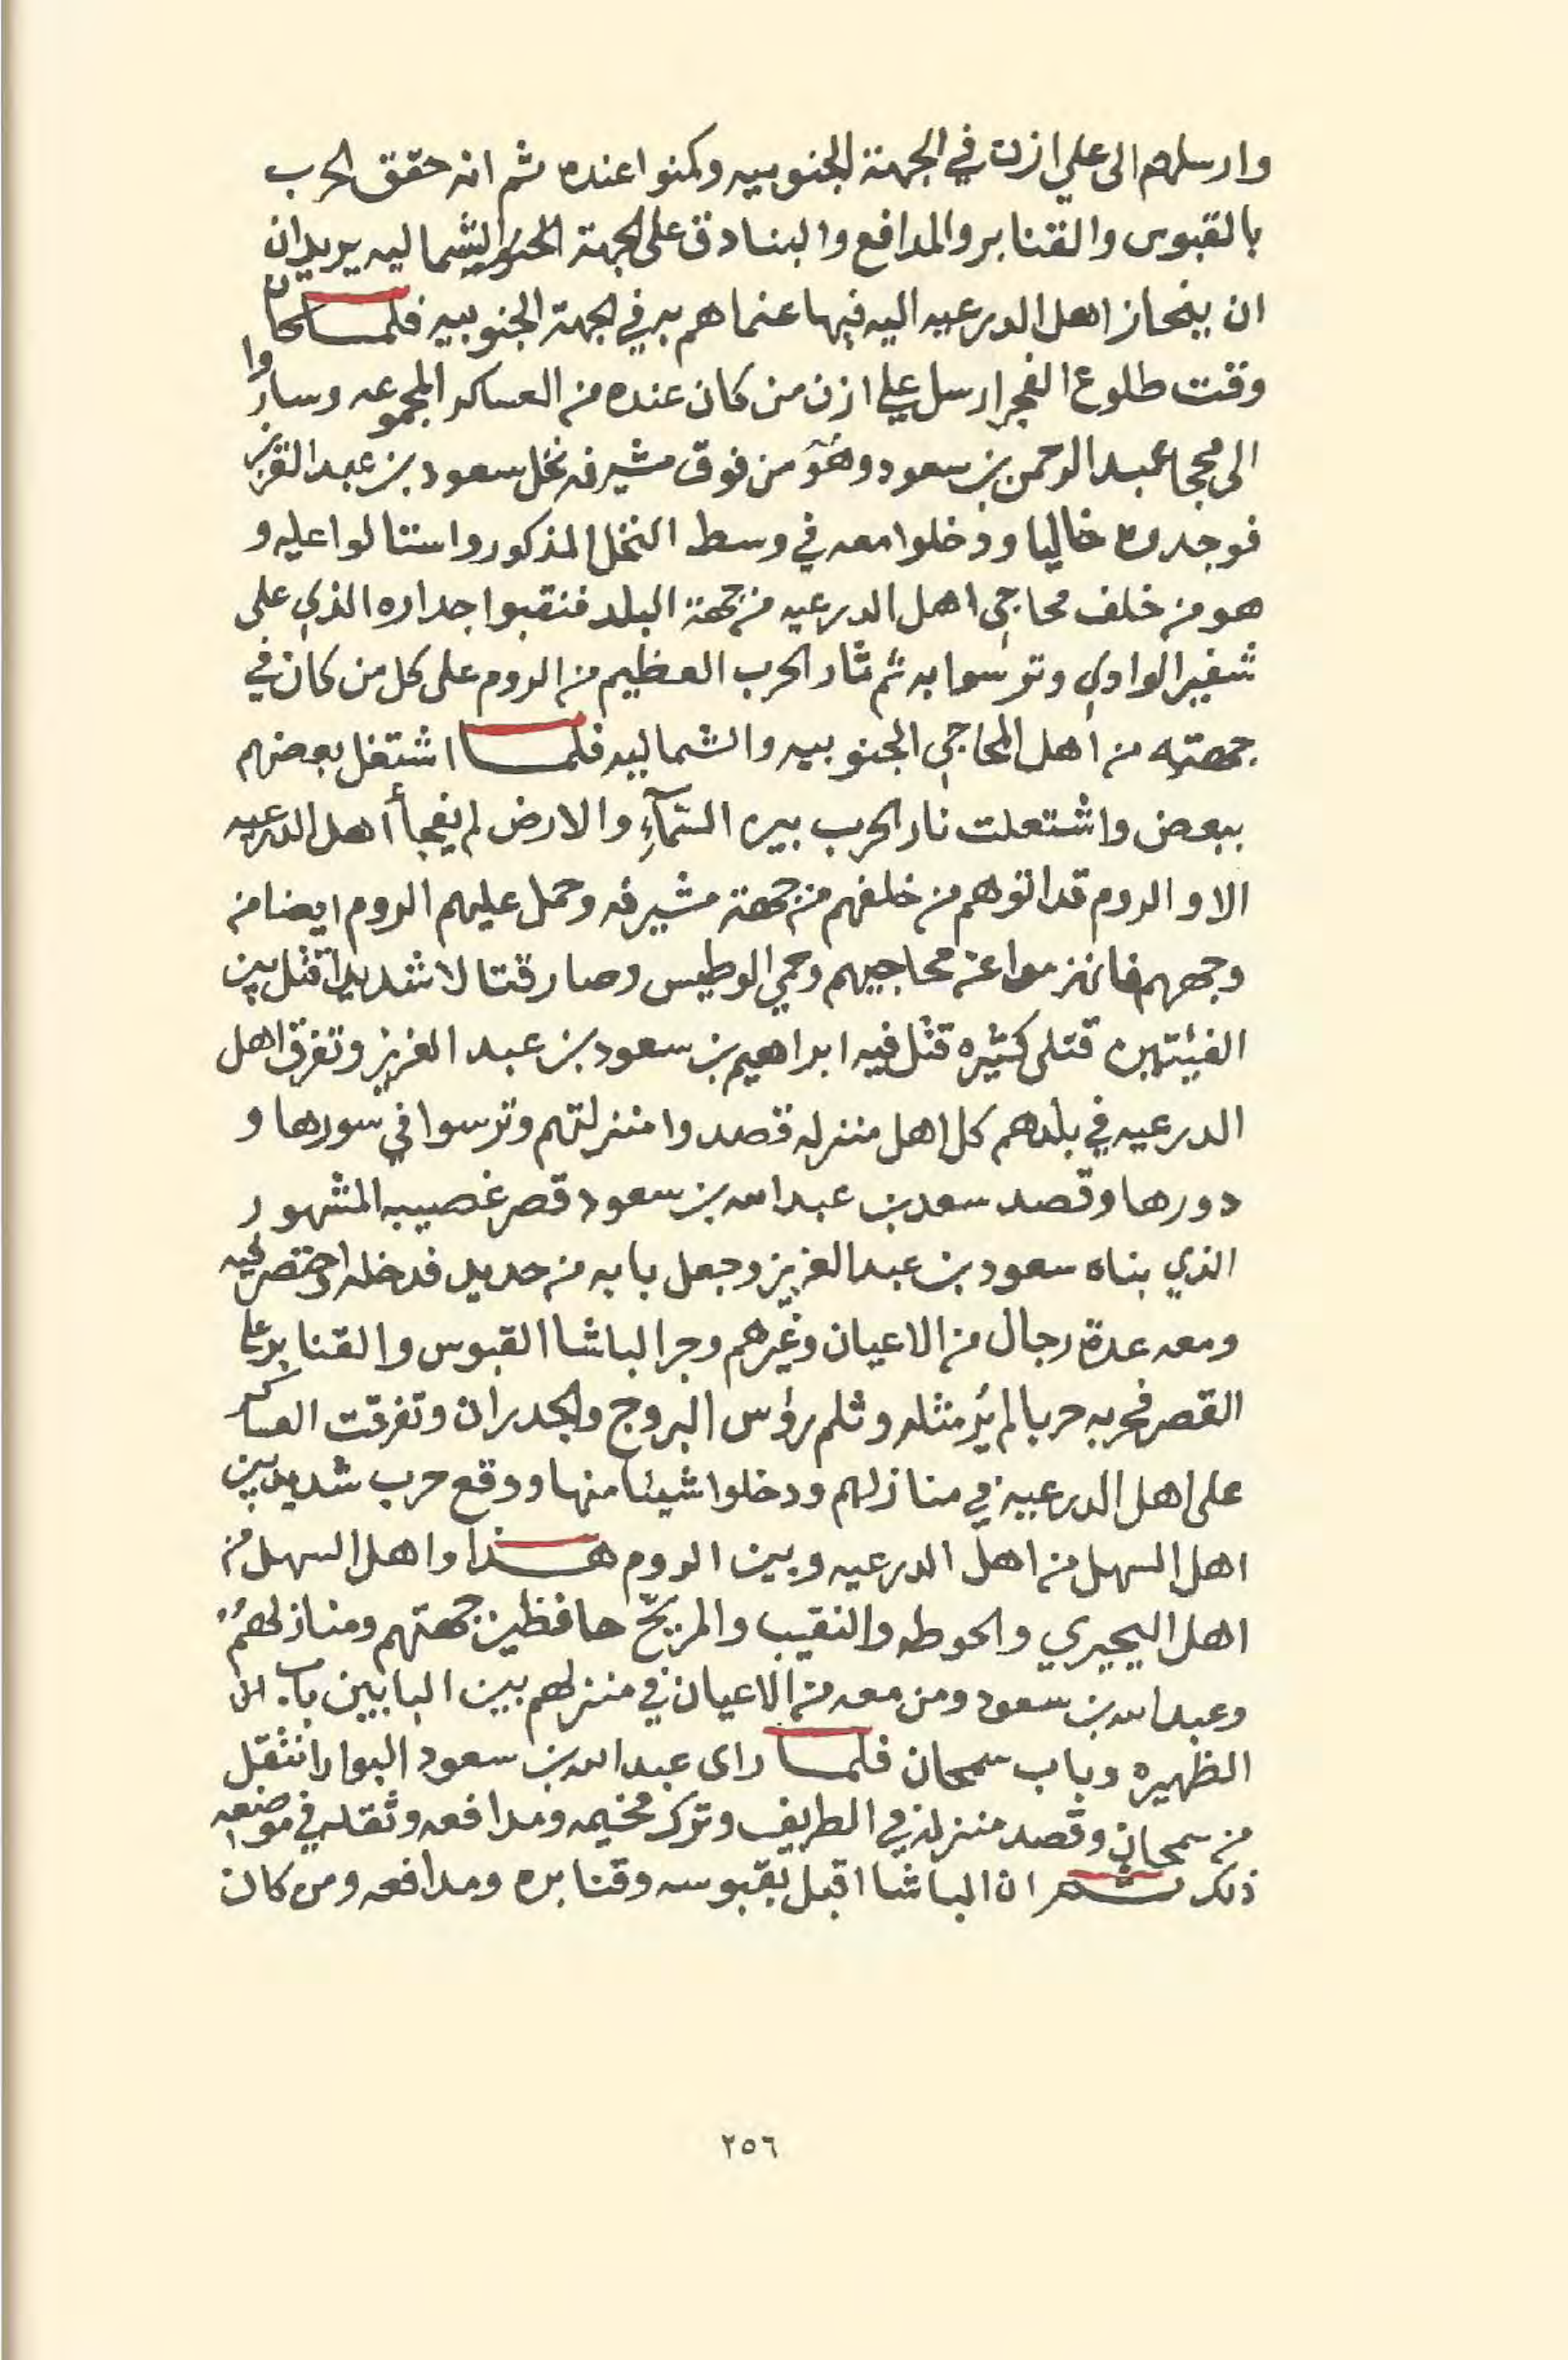 وارسلهم الى علي ازن في الجهة الجنوبيه وكمنوا عنده ثم انه حقق الحرب
بالقبوس والقنابر والمدافع والبنادق على الجهة الشماليه يريد ان
ان ينحاز اهل الدرعيه اليه فيها عنما هم به في الجهة الجنوبيه فلما كان
وقت طلوع الفجر ارسل علي ازن من كان عنده من العساكر المجموعه وساروا
الى محجا عبد الرحمن بن سعود وهو من فوق مشيرفه نخل سعود بن عبد العزيز
فوجدوه خاليا ودخلوا معه في وسط النخل المذكور واستالوا عليه و
هو من خلف محاجي اهل الدرعيه من جهة البلد فنقبوا جداره الذي على
شفير الوادي وترسوا به ثم ثار الحرب العظيم من الروم على كل من كان في
جهته من أهل المحاجي الجنوبيه والشماليه فلما اشتغل بعضهم
ببعض واشتعلت نار الحرب بين السمآءِ والارض لم يفجأ أهل الدرعيه
الا والروم قد اتوهم من خلفهم من جهة مشيرفه وحمل عليهم الروم ايضا من
وجههم فانهزموا عن محاجيهم وحمي الوطيس وصار قتالا شديدا قتل بين
الفيئتين قتلى كثيره قتل فيه ابراهيم بن سعود بن عبد العزيز وتفرق اهل
الدرعيه في بلدهم كل اهل منزله قصدوا منزلتهم وترسوا في سورها و
دورها وقصد سعد بن عبد الله بن سعود قصر غصيبه المشهور
الذي بناه سعود بن عبد العزيز وجعل بابه من حديد فدخله واحتصر فيه
ومعه عدة رجال من الاعيان وغيرهم وجر الباشا القبوس والقنابر على
القصر فحربه حربا لم يُر مثله وثلم رؤس البروج والجدران وتفرقت العساكر
على اهل الدرعيه في منازلهم ودخلوا شيئا منها ووقع حرب شديد بين
اهل السهل من اهل الدرعيه وبين الروم هذا واهل السهل من
اهل البجيري والحوطه والنقيب والمريّح حافظين جهتهم ومنازلهُمُ
وعبد الله بن سعود ومن معه من الاعيان في منزلهم بين البابين باب
الظهيره وباب سمحان فلما راى عبد الله بن سعود البوار انتقل
من سمحان وقصد منزله في الطريف وترك مخيمه ومدافعه وثقله في موضعه
ذلك ثم ان الباشا اقبل بقبوسه وقنابره ومدافعه ومن كان
٢٥٦